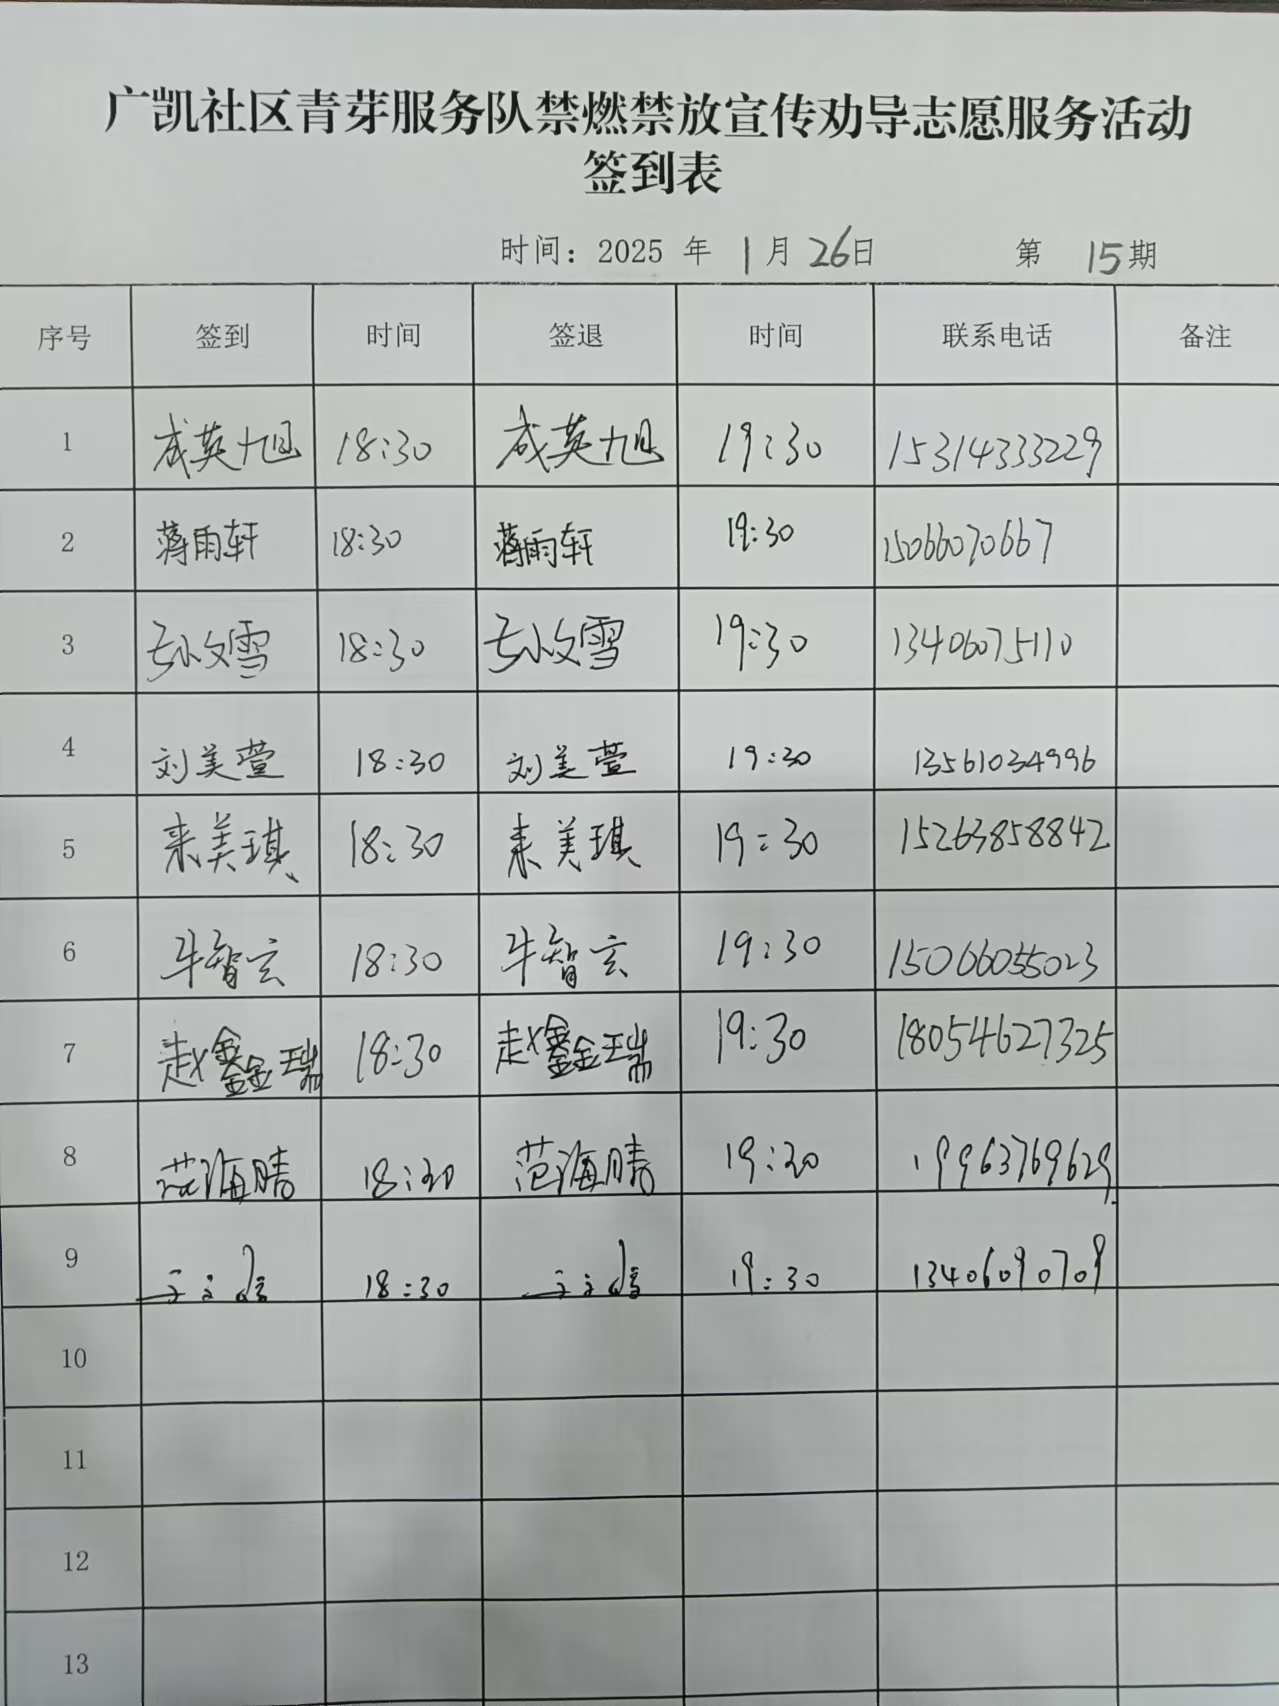 广凯社区青芽服务队禁燃禁放宣传劝导志愿服务活动
签到表
时间：2025 年 1 月 26 日 第 15 期
序号 签到 时间 签退 时间 联系电话 备注
1 成英旭 18:30 成英旭 19:30 15314333229
2 蒋雨轩 18:30 蒋雨轩 19:30 15066070667
3 孙文雪 18:30 孙文雪 19:30 13406075110
4 刘美萱 18:30 刘美萱 19:30 13561034996
5 来美琪 18:30 来美琪 19:30 15263858842
6 牛智玄 18:30 牛智玄 19:30 15066055023
7 赵鑫瑞 18:30 赵鑫瑞 19:30 18054627325
8 范海晴 18:30 范海晴 19:30 19963769629
9 18:30 19:30 13406090709
10
11
12
13